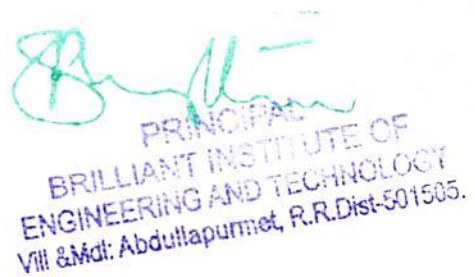 PRINCIPAL
BRILLIANT INSTITUTE OF
ENGINEERING AND TECHNOLOGY
Vill &Mdl: Abdullapurmet, R.R.Dist-501505.